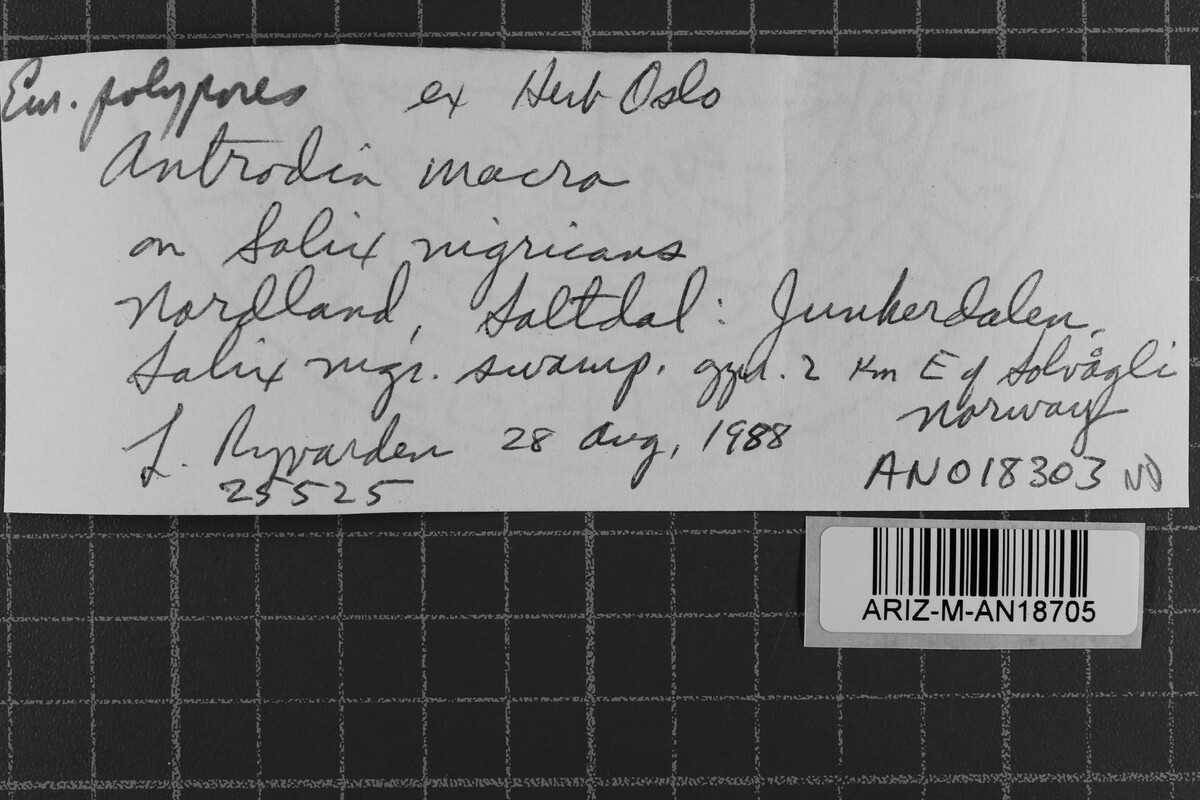 Eur. polypores ex Herb Oslo
Antrodia macra
on Salix nigricans
Nordland, Saltdal: Junkerdalen,
Salix nigr. swamp. 2 km E of Solvågli
Norway
L. Ryvarden 28 Aug, 1988
25525
AN018303
ARIZ-M-AN18705